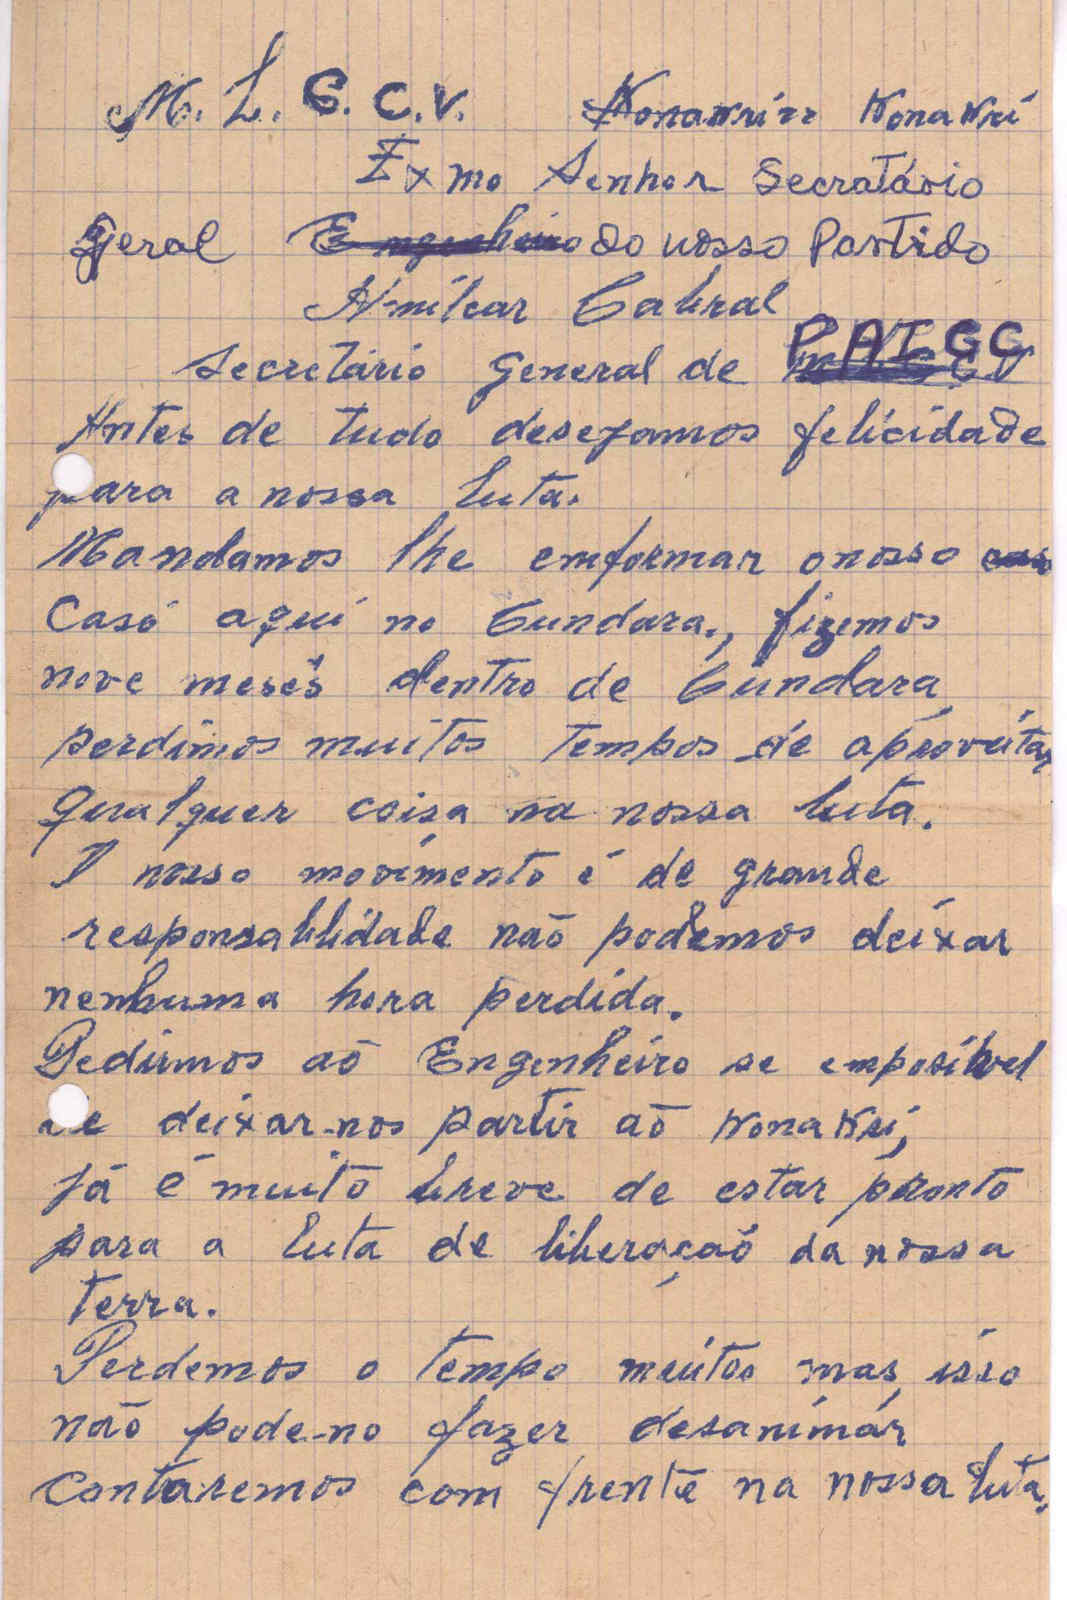 M. L. G. C. V. Konakri Konakri
Exmo Senhor Secratário
Geral Engenheiro do nosso Partido
Amílcar Cabral
PAIGC
Secretário General de
Antes de tudo desejamos felicidade
para a nossa luta.
Mandamos lhe emformar o nosso caso
Casó aqui no Cundara., fizemos
nove mesês dentro de Cundara
perdimos muitos tempos de aproveitar
qualquer coisa na nossa luta.
O nosso movimento é de grande
responsablidade naõ podemos deixar
nenhuma hora perdida.
Pedimos aõ Engenheiro se emposibvel
de deixar-nos partir aõ Konakri,
Já é muito breve de estar pronto
para a luta de liberaçaõ da nossa
terra.
Perdemos o tempo muitos mas isso
naõ pode-no fazer desanimár
contaremos com frente na nossa luta.